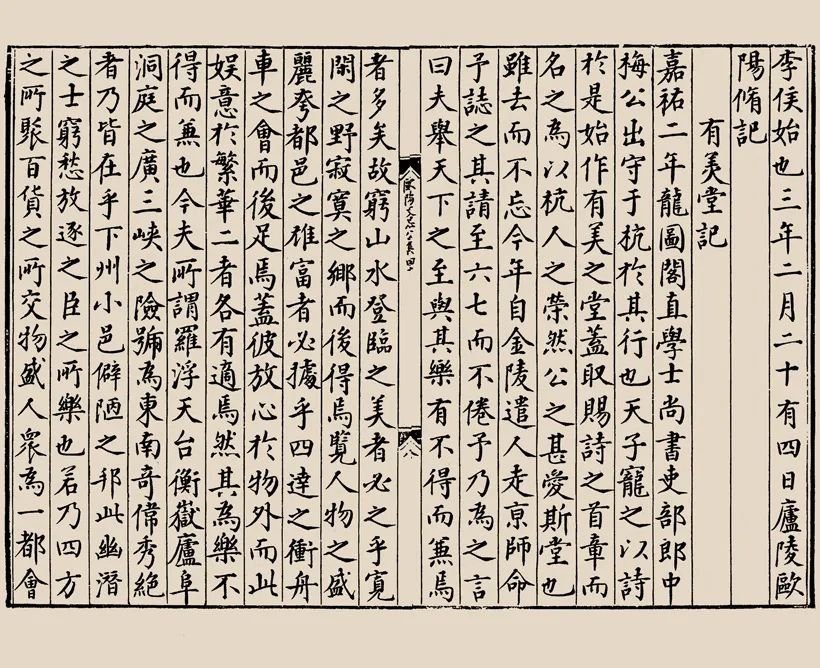 李侯始也三年二月二十有四日廬陵歐
陽脩記
有美堂記
嘉祐二年龍圖閣直學士尚書吏部郎中
梅公出守于杭於其行也天子寵之以詩
於是始作有美之堂蓋取賜詩之首章而
名之為以杭人之榮然公之甚愛斯堂也
雖去而不忘今年自金陵遣人走亰師命
予誌之其請至六七而不倦予乃為之言
曰夫舉天下之至與其樂有不得而兼焉
歐陽文忠公集四
八
者多矣故窮山水登臨之美者必之乎寬
閑之野寂寞之鄉而後得焉覽人物之盛
麗夸都邑之雄富者必據乎四達之衝舟
車之會而後足焉蓋彼放心於物外而此
娛意於繁華二者各有適焉然其為樂不
得而兼也今夫所謂羅浮天台衡嶽廬阜
洞庭之廣三峽之險號為東南奇偉秀絕
者乃皆在乎下州小邑僻陋之邦此幽潛
之士窮愁放逐之臣之所樂也若乃四方
之所聚百貨之所交物盛人衆為一都會